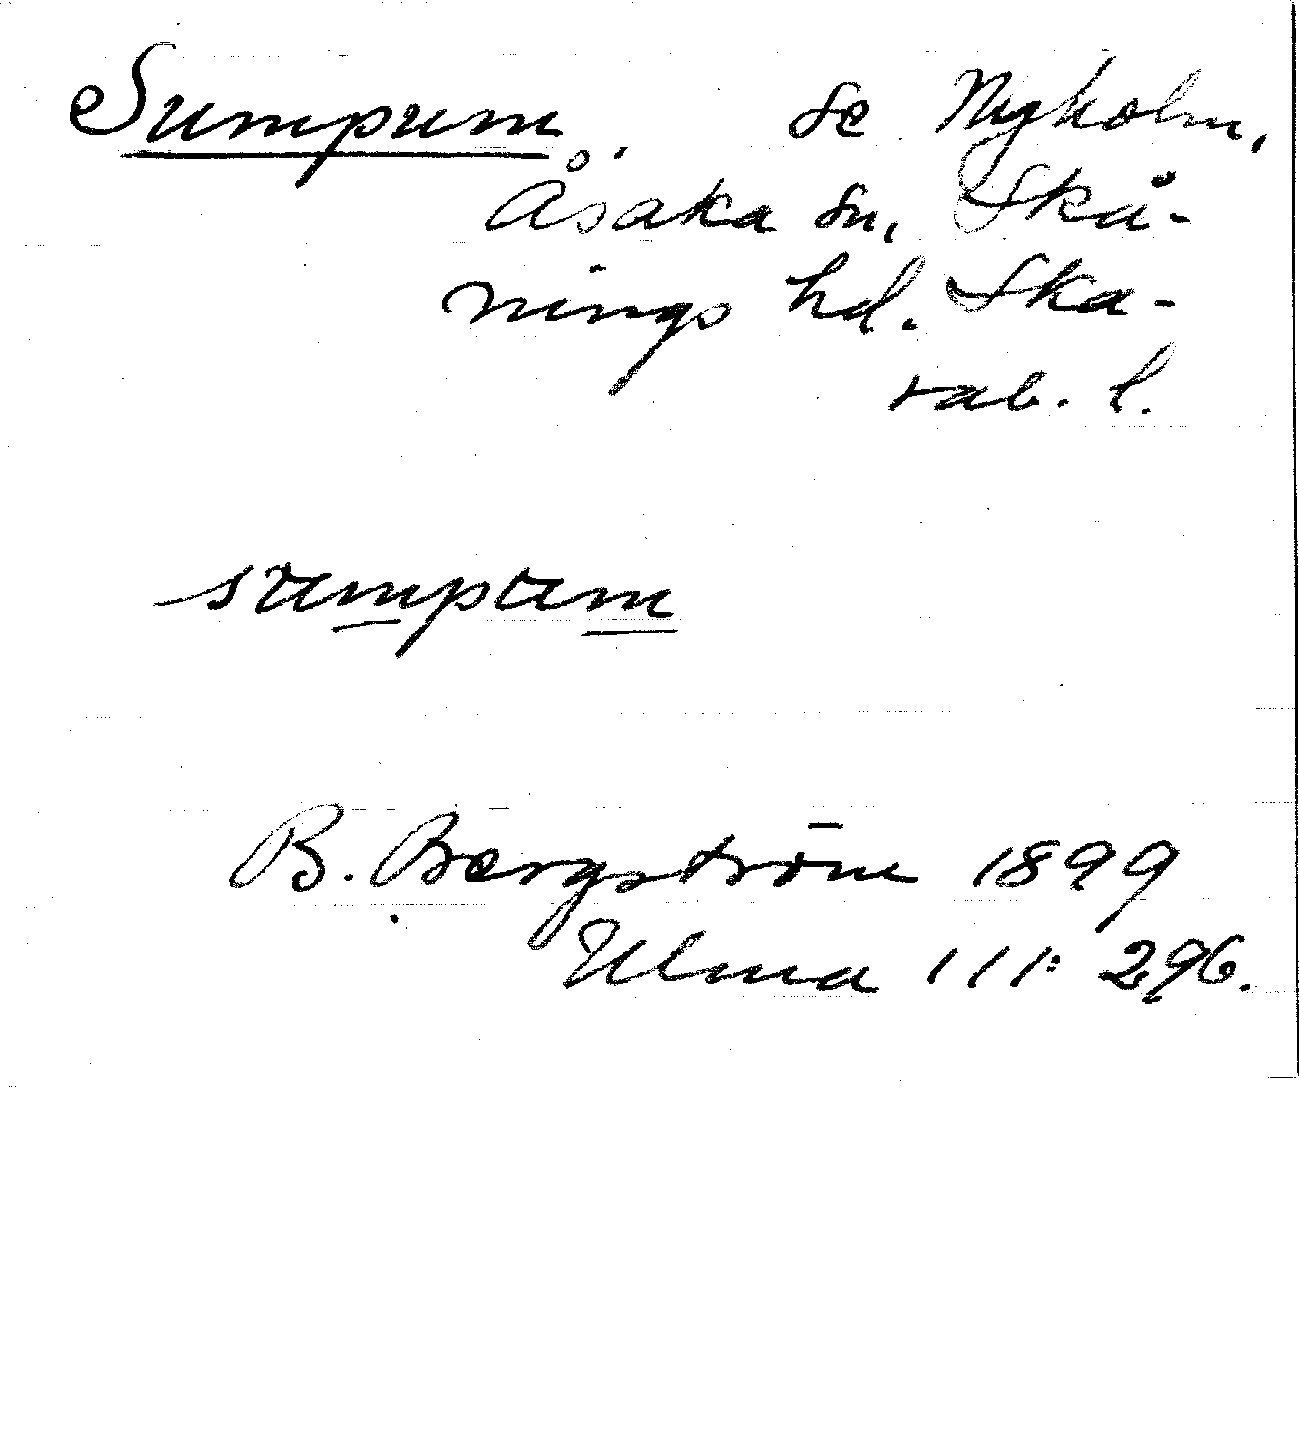 Sumpum. se Nyholm,
Åsaka sn, Skå-
nings hd. Ska-
rab. l.
sumpum
B. Bergström 1899
Ulma 111: 296.